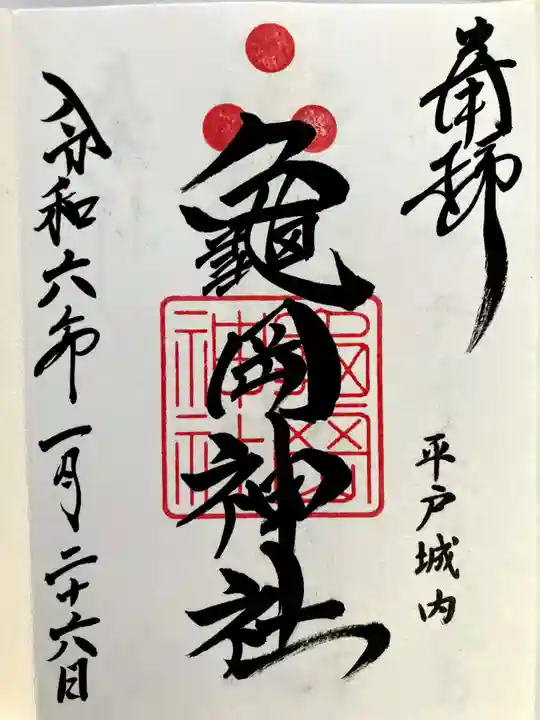 奉拝
平戸城内
龜岡神社
令和六年一月二十六日
亀岡
神社